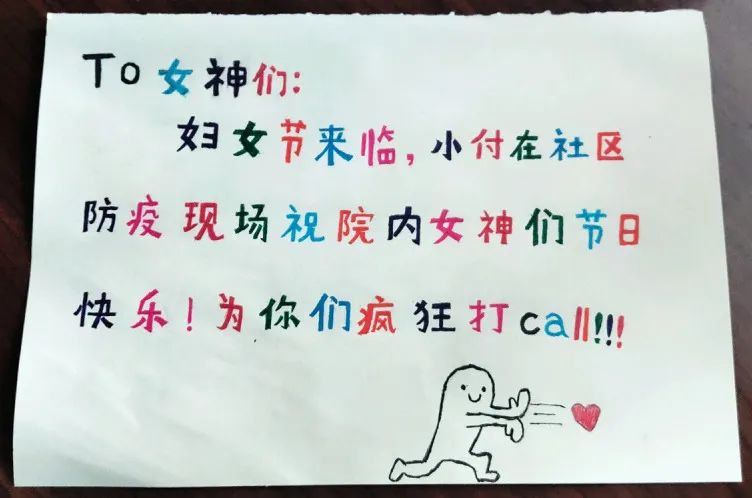 To女神们:
妇女节来临,小付在社区
防疫现场祝院内女神们节日
快乐!为你们疯狂打call!!!